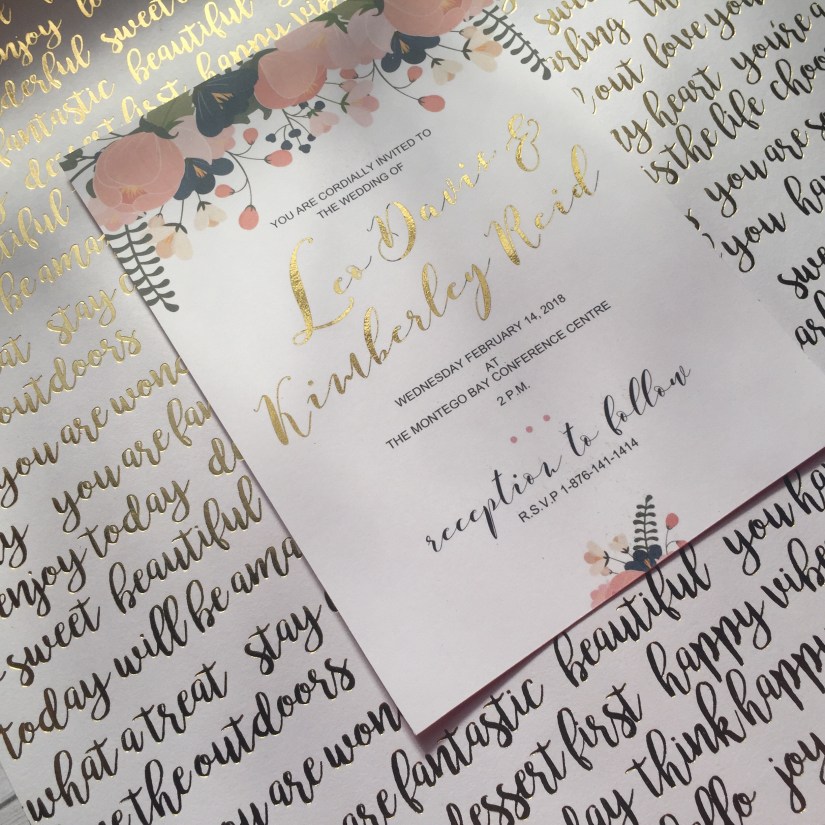 enjoy
sweet
fantastic beautiful
dessert first happy vibe
be ama
stay
outdoors
you are won
you are fan
enjoy today
sweet beautiful
today will be ama
what a treat stay
the outdoors
you are won
YOU ARE CORDIALLY INVITED TO
THE WEDDING OF
Leo Davis &
Kimberley Reid
WEDNESDAY FEBRUARY 14, 2018
AT
THE MONTEGO BAY CONFERENCE CENTRE
2 P.M.
reception to follow
R.S.V.P 1-876-141-1414
out love you
heart you're a
is the life
you are
you
sweet
are fantastic beautiful you
dessert first happy vibe
think happy
hello joy